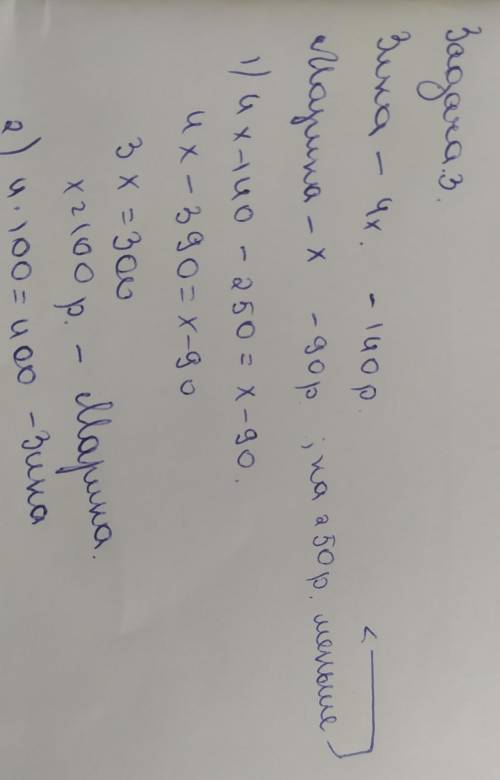 Задача 3.
Зина – 4x. – 140р.
Марина – x – 90р. ; на 250р. меньше
1) 4x – 140 – 250 = x – 90.
4x – 390 = x – 90
3x = 300
x = 100 р. – Марина.
2) 4 · 100 = 400 – Зина